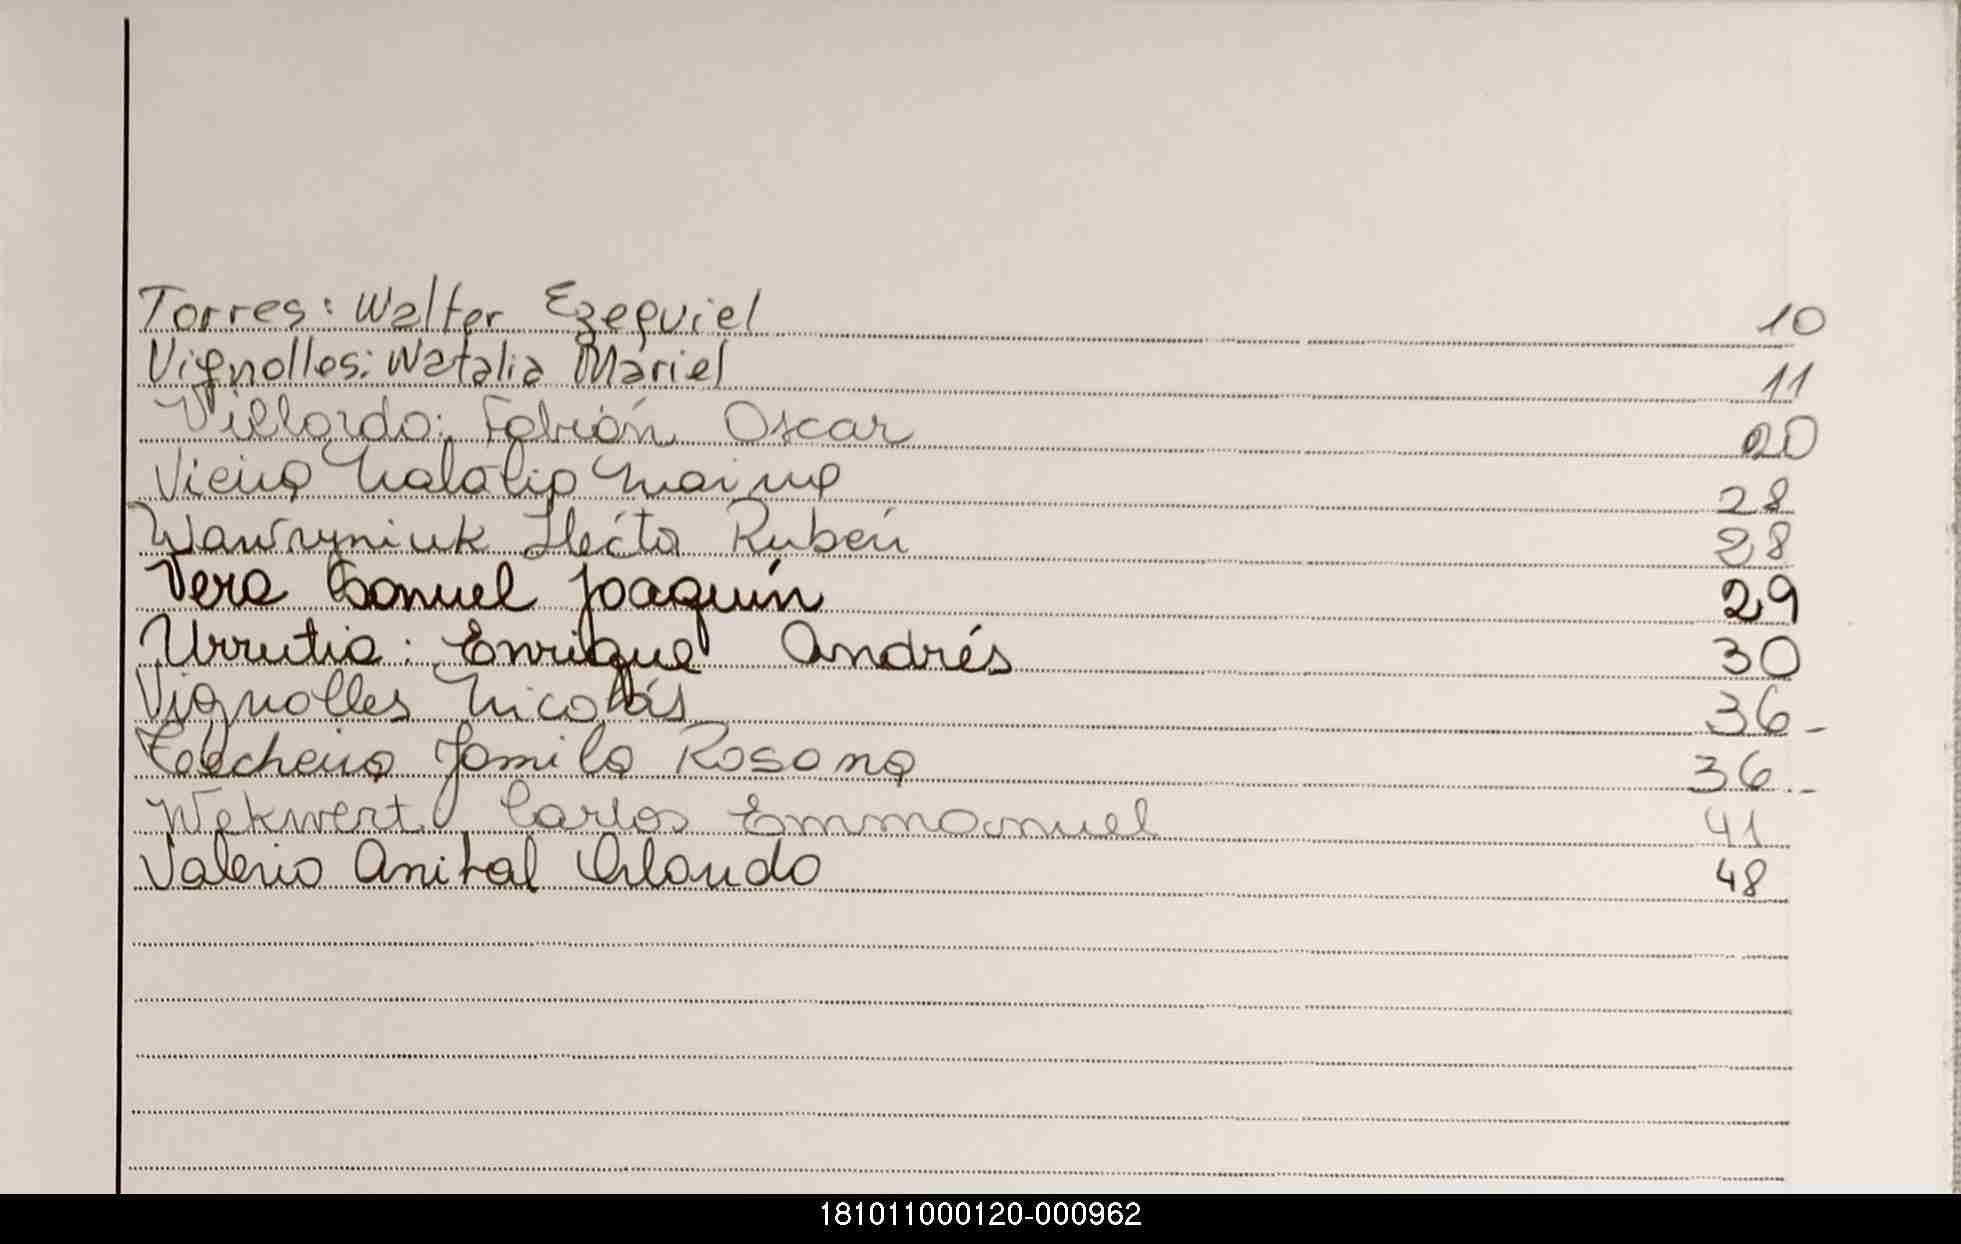 Torres: Walter Ezequiel 10
Vignolles: Natalia Mariel 11
Villordo: Fabián Oscar 20
Vieira Natalia 28
Wawryniuk Héctor Rubén 28
Vera Samuel Joaquín 29
Urrutia: Enrique Andrés 30
Vignolles Nicolás 36-
Jamila Rosana 36-
Wekwert Carlos Emmanuel 41
Valerio Anibal Orlando 48
181011000120-000962